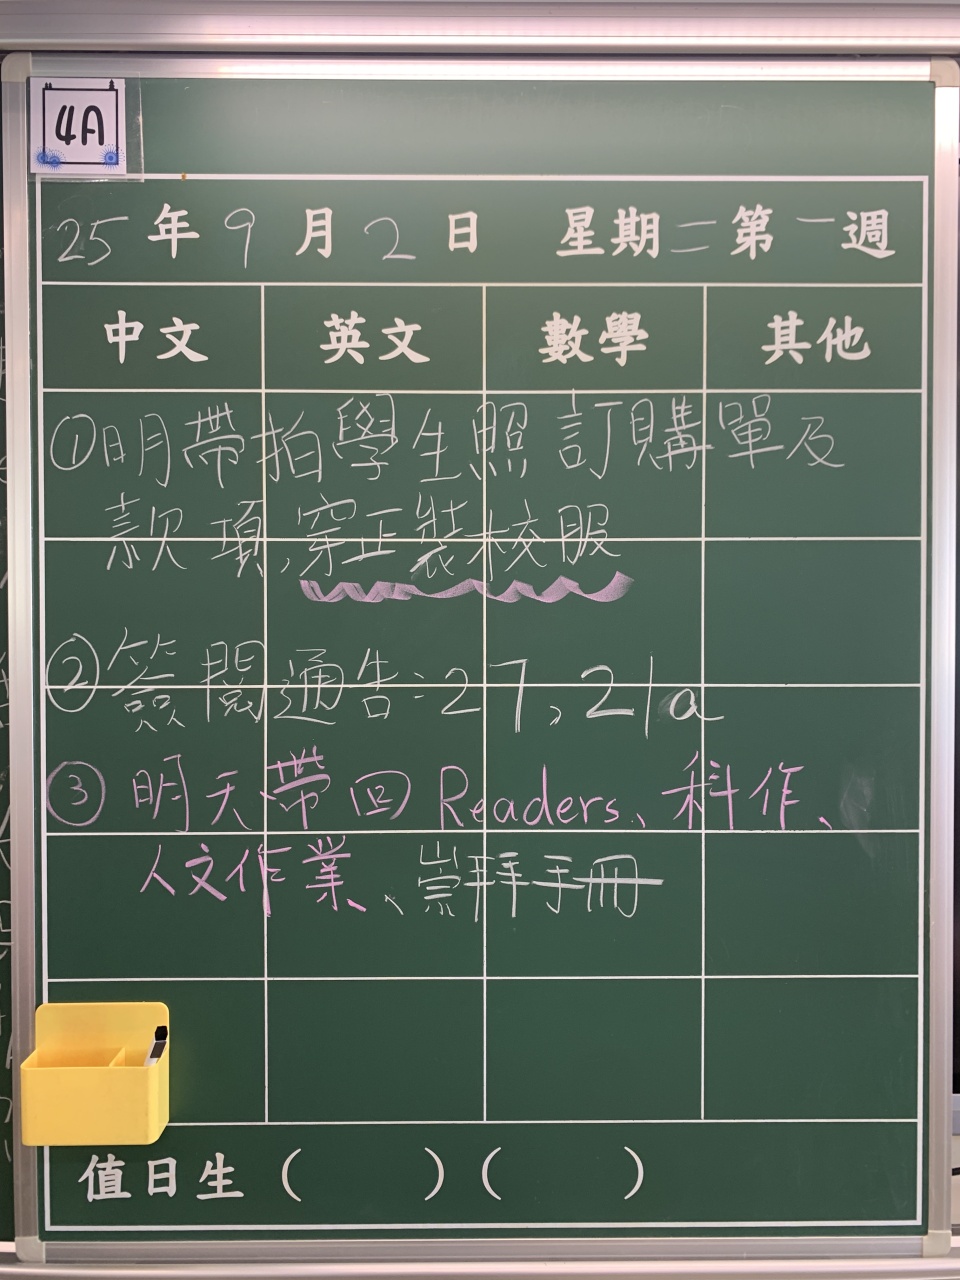 4A
25年9月2日 星期二第一週
中文 英文 數學 其他
①明帶拍學生照訂購單及
款項,穿正裝校服
②簽閱通告:27,21a
③明天帶回Readers、科作、
人文作業、崇拜手冊
值日生 ( ) ( )